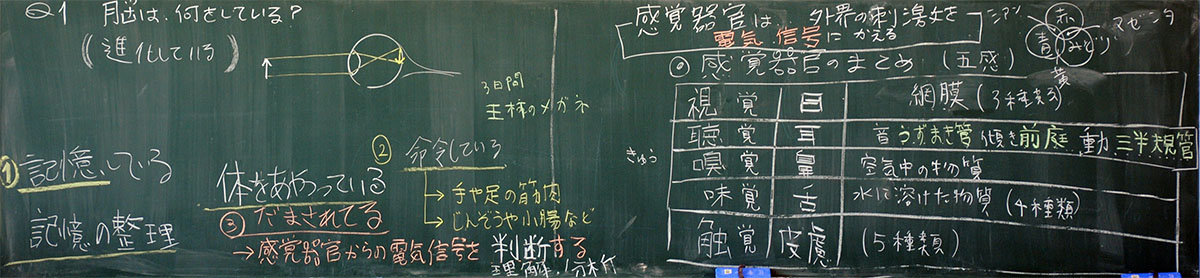 Q1 脳は、何をしている?
(進化している)
3日間
王様のメガネ
① 記憶している
記憶の整理
体をあやつっている
② 命令している
→手や足の筋肉
→じんぞうや小腸など
③ だまされてる
→感覚器官からの電気信号を判断する
理解、分析
感覚器官は… 外界の刺激を
電気信号にかえる
シアン 赤 マゼンタ
青 みどり
黄
◎感覚器官のまとめ (五感)
視覚 目 網膜(3種類)
聴覚 耳 音うずまき管 傾き前庭 動 三半規管
きゅう
嗅覚 鼻 空気中の物質
味覚 舌 水に溶けた物質(4種類)
触覚 皮膚 (5種類)